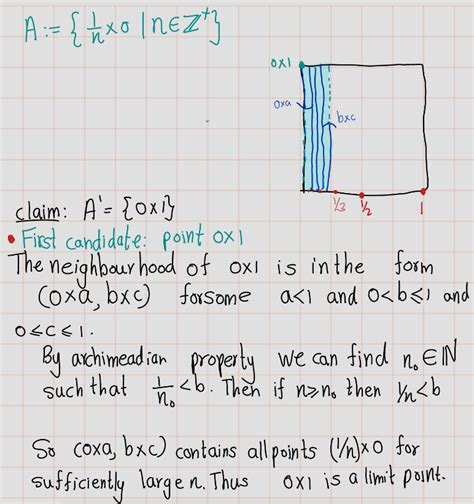 A := { 1/n × 0 | n ∈ ℤ⁺}
0×1
0×a
b×c
1/3
1/2
1
claim: A' = {0×1}
• First candidate: point 0×1
The neighbourhood of 0×1 is in the form
(0×a, b×c) forsome a<1 and 0<b≤1 and
0≤c≤1.
By archimeadian property we can find n₀ ∈ ℕ
such that 1/n₀ < b. Then if n≥n₀ then 1/n < b
So (0×a, b×c) contains all points (1/n)×0 for
sufficiently large n. Thus 0×1 is a limit point.